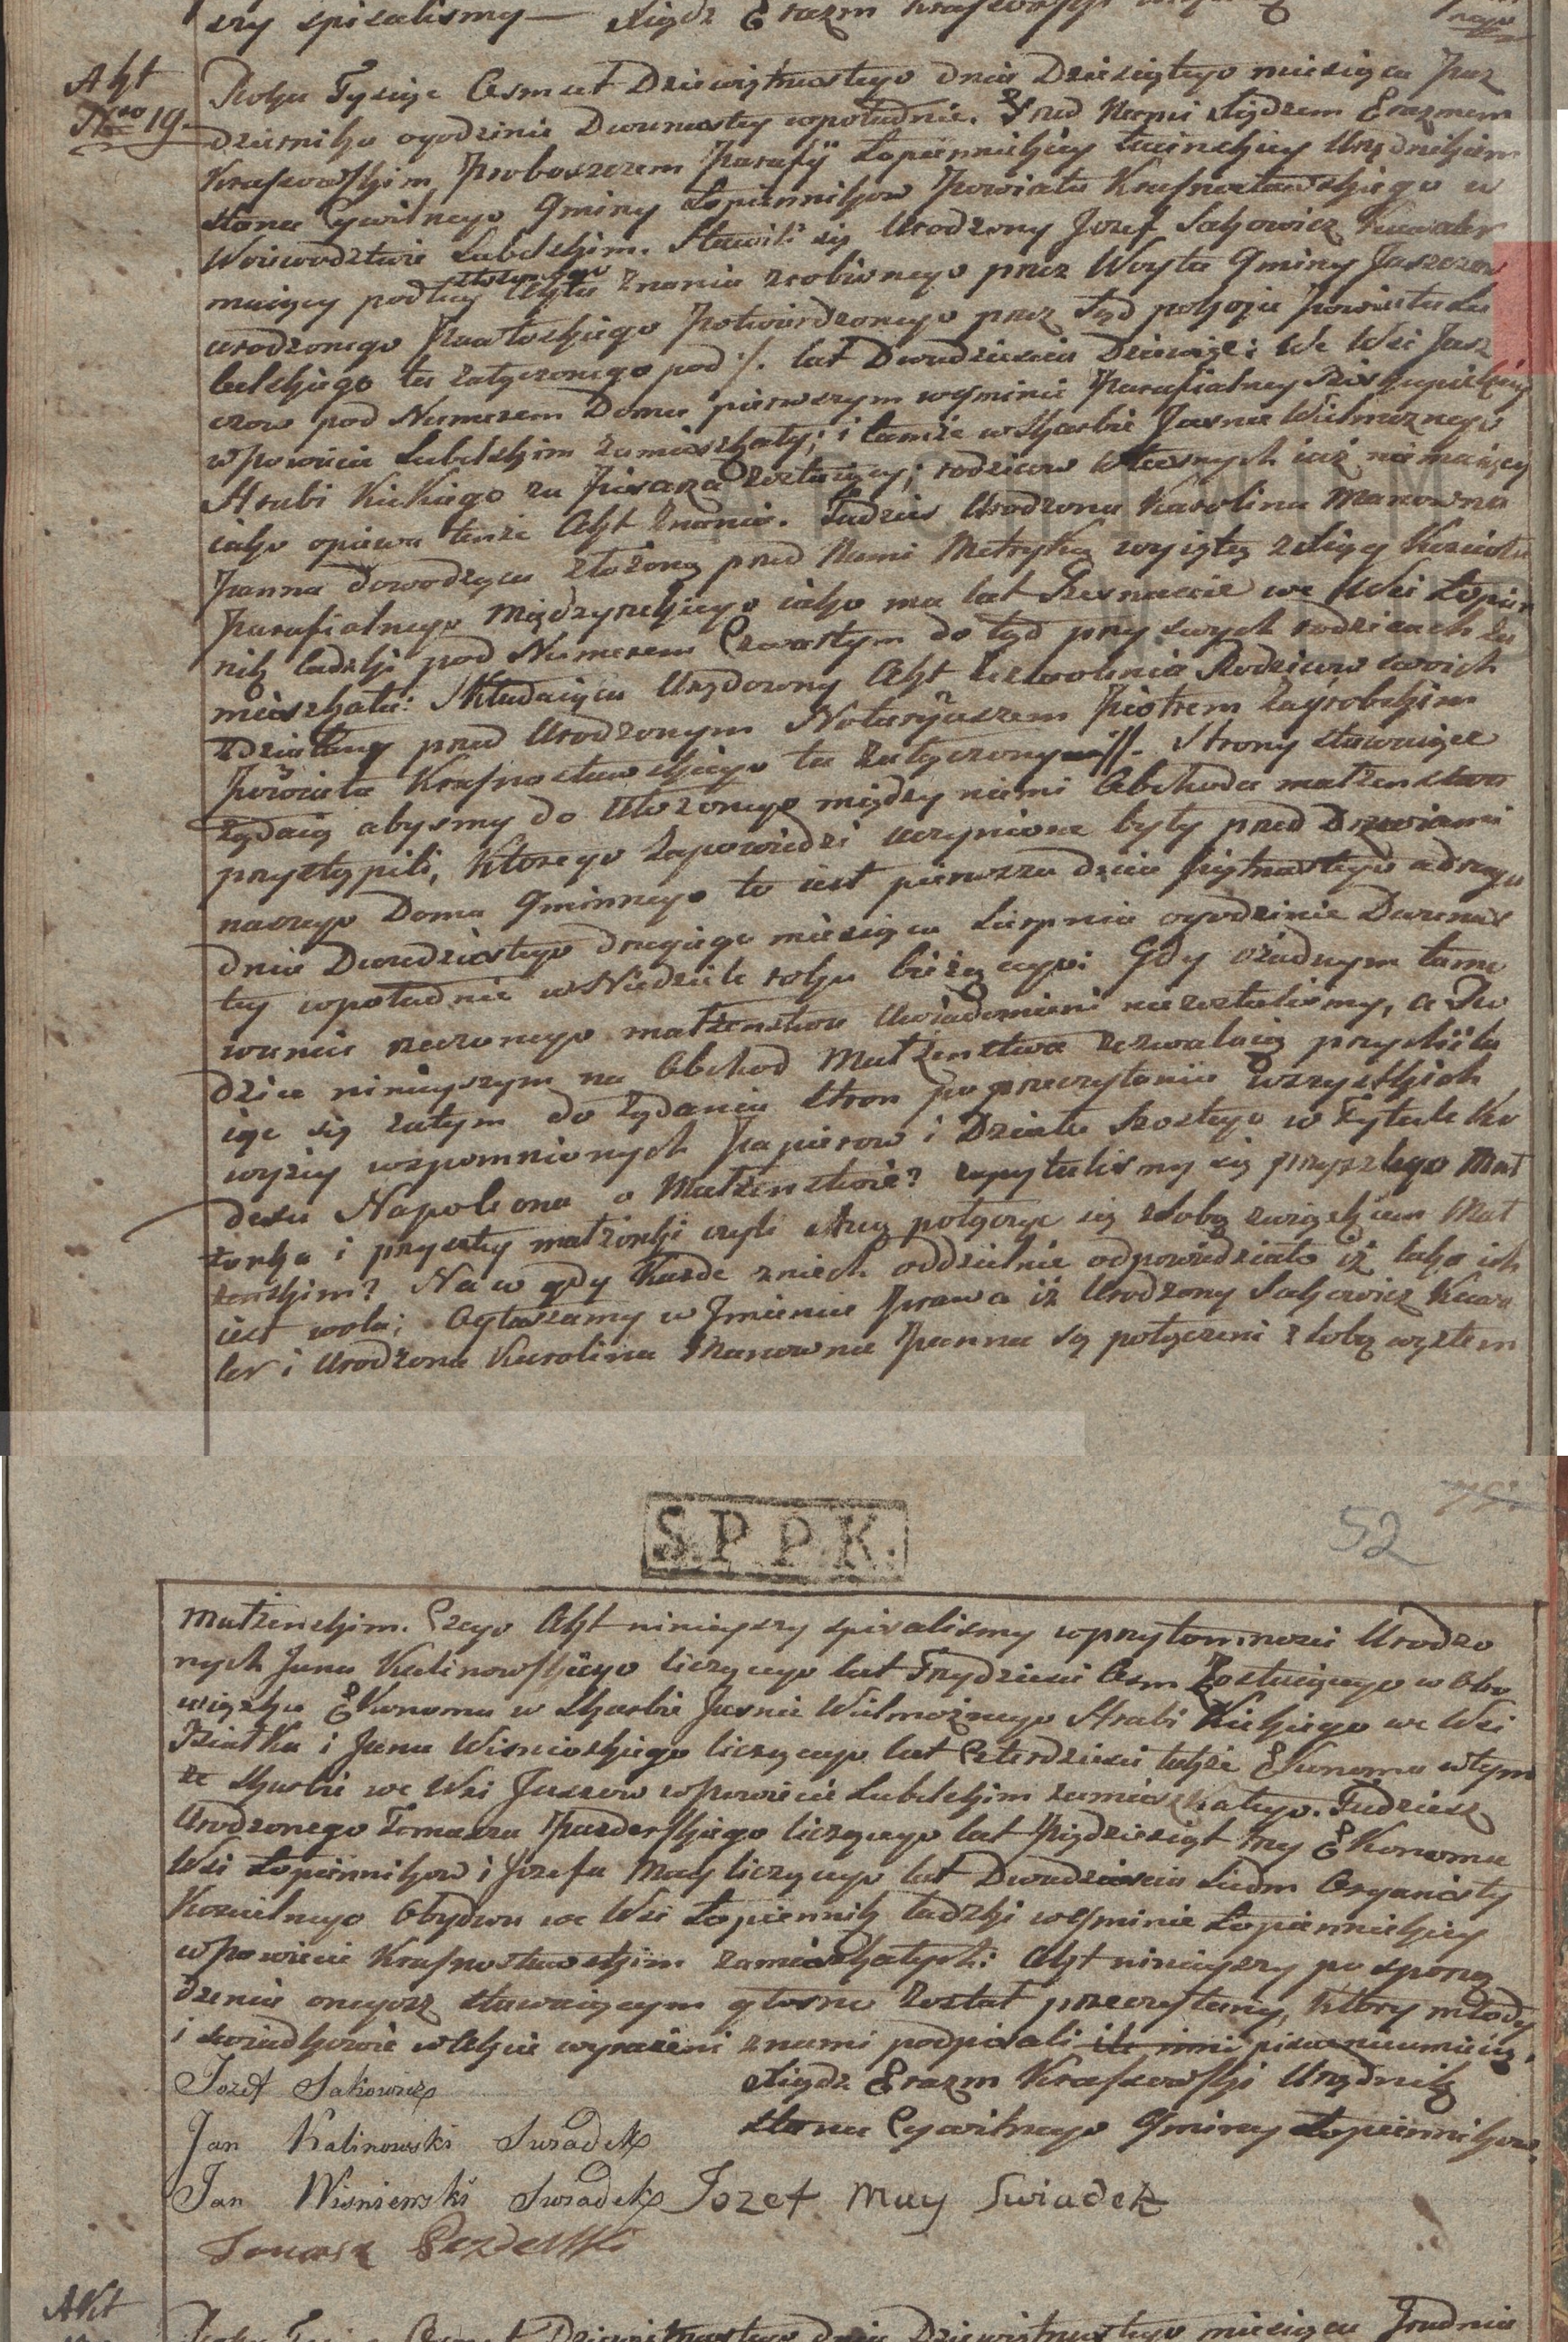 szy spisalismy — Xiądz Erazm
Akt
Nro 19.
Roku Tysiąc Osmset Dziewiętnastego dnia Dziesiątego miesiąca Paz
dziernika ogodzinie Dwunastey wpołudnie. Przed Nami Xiędzem Erazmem
Krassowskim Proboszczem Parafij Łopiennickiey tuteyszey Urzędnikiem
Stanu Cywilnego Gminy Łopiennikow Powiatu Krasnostawskiego w
Woiewodztwie Lubelskim. Stawili się Urodzony Jozef Sakowicz Kawaler
maiący podług złożonego Aktu Znania zrobionego przez Woyta Gminy Jaszczow
urodzonego Pawłoskiego potwierdzonego przez Sąd pokoju Powiatu Lu
belskiego tu załączonego pod /. lat Dwadziescia Dziewięć; We Wsi Jasz
czow pod Numerem Domu pierwszym wgminie Parafialney Biskupickiey
wpowiecie Lubelskim zamieszkały; i tamże wSkarbie Jasnie Wielmożnego
Hrabi Kickiego za Pisarza zostaiący; rodzicow własnych iuż niemaiący
iako opiewa tenże Akt Znania. Tudzież Urodzona Karolina Manowna
Panna dowodząca złożoną przed Nami Metryką wyiętą z Xiąg Koscioła
Parafialnego Międzyrzeckiego iako ma lat Szesnascie we Wsi Łopien
nik ladzki pod Numerem Czwartym do tąd przy swych rodzicach za
mieszkała: Składaiąca Urzędowny Akt Zezwolenia Rodzicow swoich
zdziałany przed Urodzonym Notaryuszem Piotrem Zagrobskim
Powiatu Krasnostawskiego tu załączony //. Strony stawaiące
żądaią abysmy do ułożonego między niemi Obchodu małżenstwa
przystąpili, ktorego zapowiedzi uczynione były przed Drzwiami
naszego Domu Gminnego to iest pierwsza dnia piętnastego adruga
dnia Dwudziestego drugiego miesiąca Sierpnia ogodzinie Dwunas
tey wpołudnie wNiedziele roku bieżącego: Gdy ożadnym tamo
waniu rzeczonego małżenstwa Uwiadomieni niezostalismy, a Ro
dzice ninieyszym na Obchod Małżenstwa zezwalaią przychila
iąc się zatym do żądania stron poprzeczytaniu wszystkich
wyżey wspomnionych Papierow i Działu szostego w Tytule Ko
dexu Napoleona o Małżenstwie? zapytalismy się przyszłego Mał
żonka i przyszłey małżonki czyli chcą połączyć się zsobą związkiem Mał
żenskim? Na co gdy każde zniech oddzielnie odpowiedziało iż taka ich
iest wola; Ogłaszamy w Jmieniu Prawa iż Urodzony Sakowicz Kawa
ler i Urodzona Karolina Manowna Panna są połączeni zsobą węzłem
S.P.P.K.
52
Małżenskim. Czego Akt ninieyszy spisalismy wprzytomnosci Urodzo
nych Jana Kalinowskiego liczącego lat Trzydziesci Osm zostaiącego w Obo
wiązku Ekonoma w Skarbie Jasnie Wielmożnego Hrabi Kickiego we Wsi
i Jana Wisnioskiego liczącego lat Czterdziesci także Ekonoma wtym
że Skarbie we Wsi Jaszow wpowiecie Lubelskim zamieszkałego. Tudziesz
Urodzonego Tomasza Pazderskiego liczącego lat Pięćdziesiąt trzy Ekonoma
Wsi Łopiennikow i Jozefa May liczącego lat Dwadziescia siedm Organisty
Koscielnego Obydwu we Wsi Łopiennik ladzki wGminie Łopiennickiey
wpowiecie Krasnostawskim zamieszkałych: Akt ninieyszy po sporzą
dzeniu onegosz stawaiącym głosno został przeczytany, ktory młody
i swiadkowie wAkcie wyrażeni znami podpisali ile inni pisac nieumieią.
Xiądz Erazm Krassowski Urzędnik
Stanu Cywilnego Gminy Łopiennikow.
Jozef Sakowicz
Jan Kalinowski Swiadek
Jan Wisniewski Swiadek Jozef May Swiadek
Tomasz Pezderski
Akt
Roku Tysiąc Osmset Dziewiętnastego dnia Dziewiętnastego miesiąca Grudnia